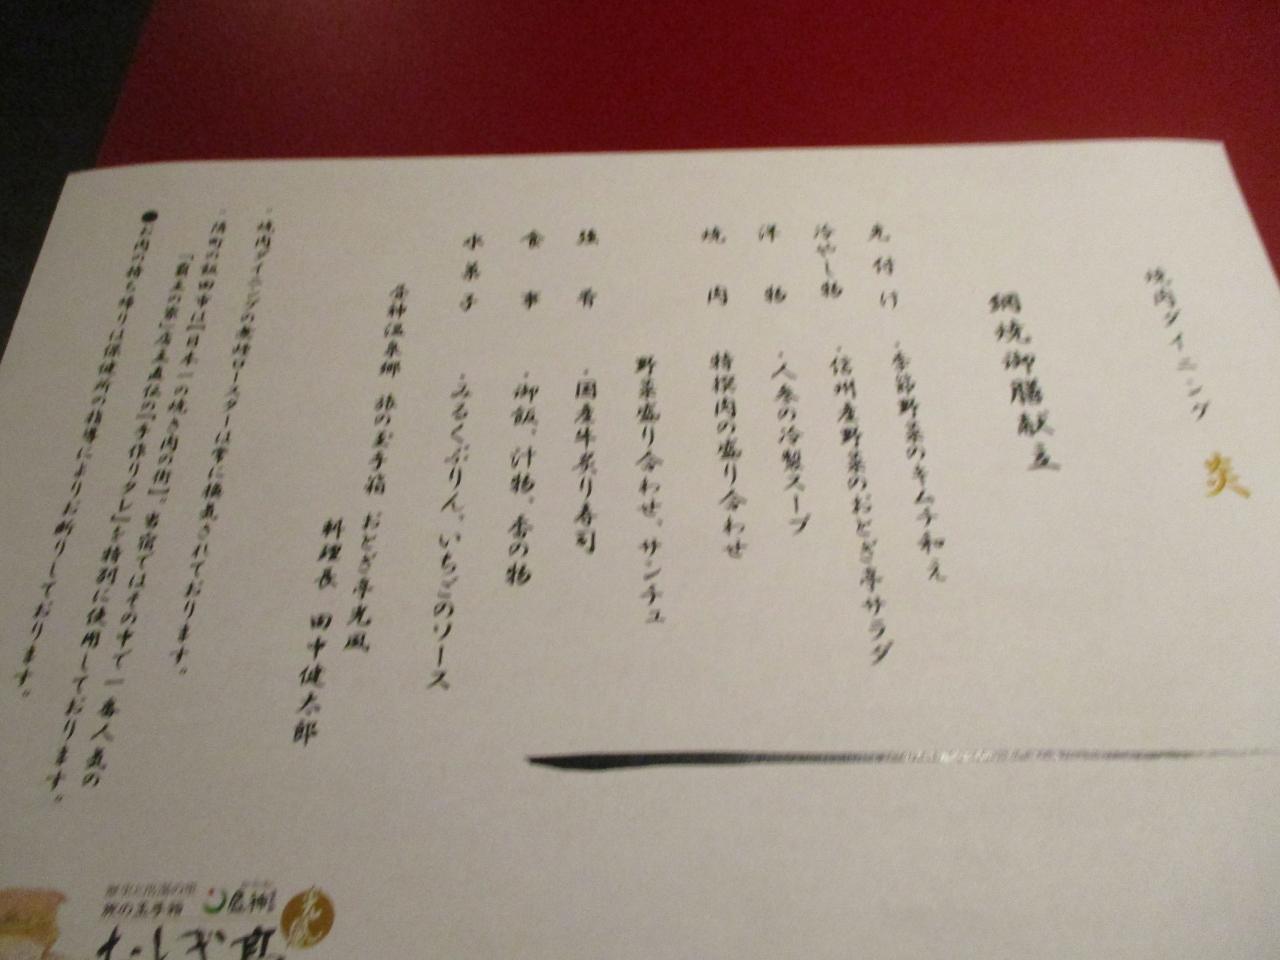 焼肉ダイニング 炎
網焼御膳献立
先付け ・季節野菜のキムチ和え
冷やし物 ・信州産野菜のおとぎ亭サラダ
洋物 ・人参の冷製スープ
焼肉 特撰肉の盛り合わせ
野菜盛り合わせ、サンチュ
強肴 ・国産牛炙り寿司
食事 ・御飯、汁物、香の物
水菓子 ・みるくぷりん、いちごのソース
昼神温泉郷 旅の玉手箱 おとぎ亭光風
料理長 田中健太郎
・焼肉ダイニングの無煙ロースターは常に換気されております。
・隣町の飯田市は『日本一の焼き肉の街』。当宿ではその中で一番人気の
店主直伝の『手作りタレ』を特別に使用しております。
●お肉の持ち帰りは保健所の指導によりお断りしております。
光風
昼神
旅の玉手箱
おとぎ亭